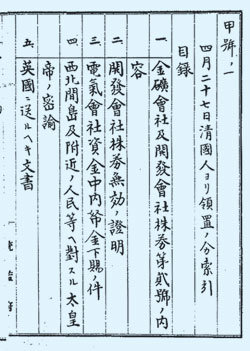 甲號ノ一
四月二十七日淸國人ヨリ領置ノ分索引
目錄
一、金礦會社及開發會社株券第貳號ノ內
容
二、開發會社株券無効ノ證明
三、電氣會社資金中內帑金下賜ノ件
四、西北間島及附近ノ人民等ヘ對スル太皇
帝ノ密諭
五、英國ニ送ルヘキ文書
統監府